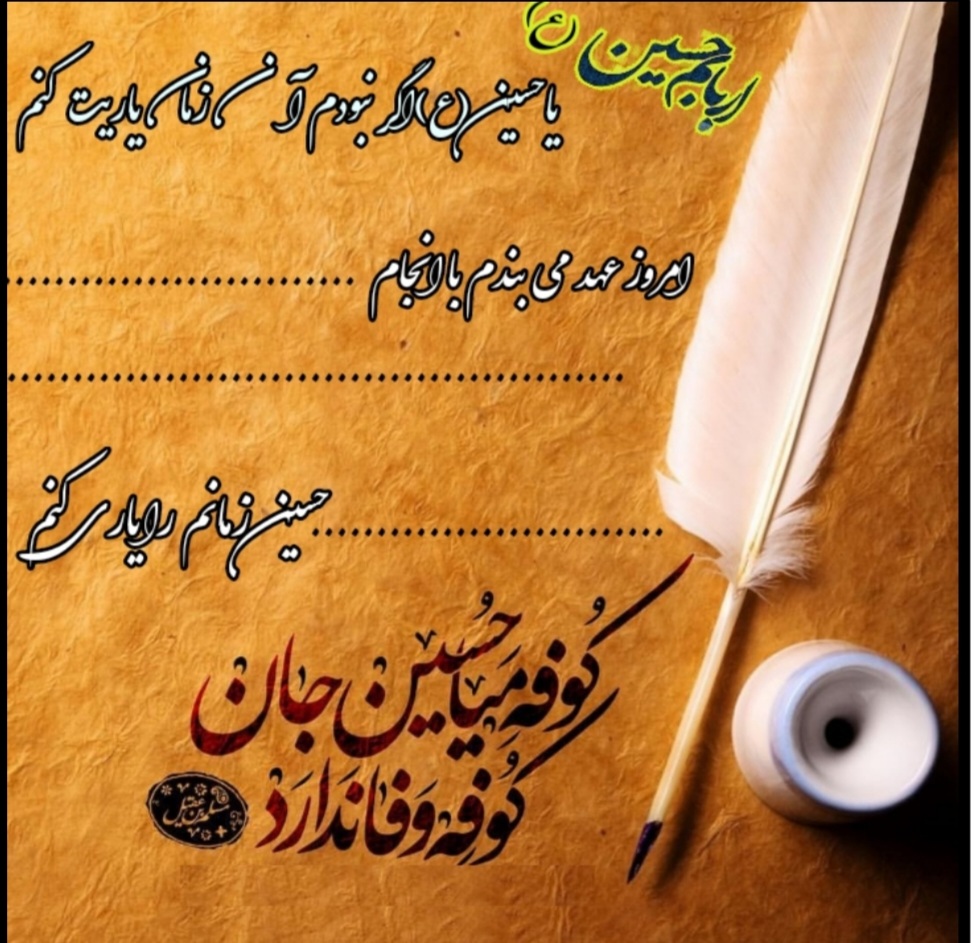 اربابم حسین (ع)
یا حسین (ع) اگر نبودم آن زمان یاریت کنم
امروز عهد می بندم با انجام ..............................
....................................................
.............................. حسین زمانم را یاری کنم
کُوفه مَیا حُسین جان
کُوفِه وَفا نَدارَد
مسلم بن عقیل